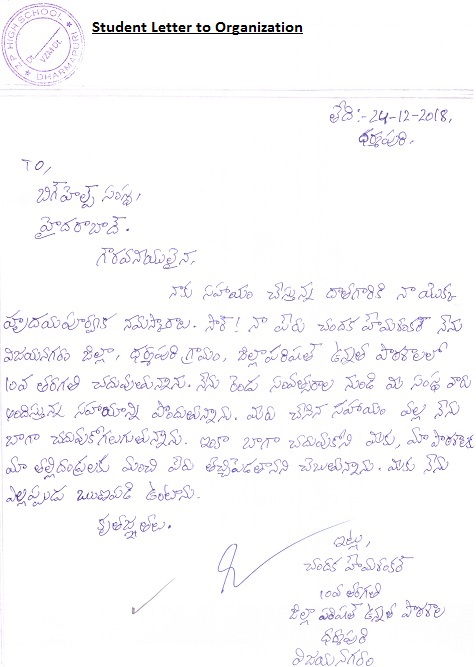 Student Letter to Organization
Z P HIGH SCHOOL
Dt VZM Dt.
★ DHARMAPURI ★
తేది:- 24-12-2018,
ధర్మపురి.
TO,
బిగ్‌హెల్ప్ సంస్థ,
హైదరాబాద్.
గౌరవనీయులైన,
నాకు సహాయం చేస్తున్న దాతగారికి నా యొక్క
హృదయపూర్వక నమస్కారాలు. సార్! నా పేరు చందక హేమశంకర్ నేను
విజయనగరం జిల్లా, ధర్మపురి గ్రామం, జిల్లాపరిషత్ ఉన్నత పాఠశాలలో
10వ తరగతి చదువుతున్నాను. నేను రెండు సంవత్సరాల నుండి మీ సంస్థ వారు
అందిస్తున్న సహాయాన్ని పొందుతున్నాను. మీరు చేసిన సహాయం వల్ల నేను
బాగా చదువుకోగలుగుతున్నాను. ఇంకా బాగా చదువుకొని మీకు, మా పాఠశాలకు
మా తల్లిదండ్రులకు మంచి పేరు తెచ్చిపెడతానని చెబుతున్నాను. మీకు నేను
ఎల్లప్పుడు ఋణపడి ఉంటాను.
కృతజ్ఞతలు.
ఇట్లు,
చందక హేమశంకర్
10వ తరగతి
జిల్లా పరిషత్ ఉన్నత పాఠశాల
ధర్మపురి
విజయనగరం